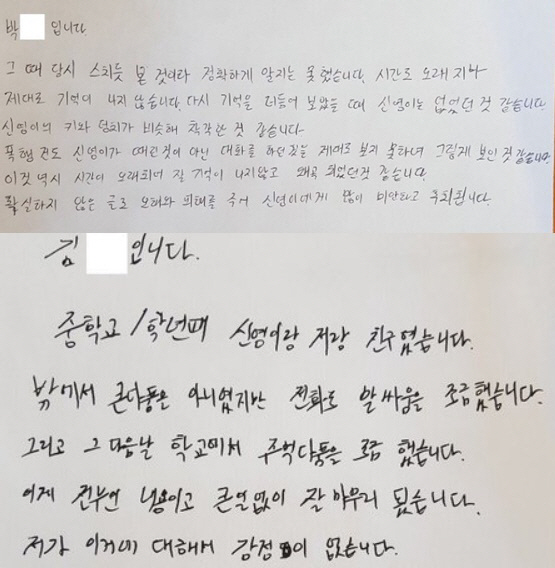 박 입니다
그 때 당시 스치듯 본 것이라 정확하게 알지는 못했습니다. 시간도 오래 지나
제대로 기억이 나지 않습니다. 다시 기억을 더듬어 보았을 때 신영이는 없었던 것 같습니다.
신영이의 키와 덩치가 비슷해 착각한 것 같습니다.
폭행건도 신영이가 때린것이 아닌 대화를 하던것을 제대로 보지 못하여 그렇게 보인 것 같습니다.
이것 역시 시간이 오래되어 잘 기억이 나지않고 왜곡 되었던것 같습니다.
확실하지 않은 글로 오해와 피해를 주어 신영이에게 많이 미안하고 후회됩니다.
김 입니다.
중학교 1학년때 신영이랑 저랑 친구였습니다.
밖에서 큰다툼은 아니였지만 전화로 말싸움을 조금 했습니다.
그리고 그 다음날 학교에서 주먹다툼을 조금 했습니다.
이게 전부인 내용이고 큰일없이 잘 마무리 됬습니다.
저가 이거에 대해서 감정이 없습니다.